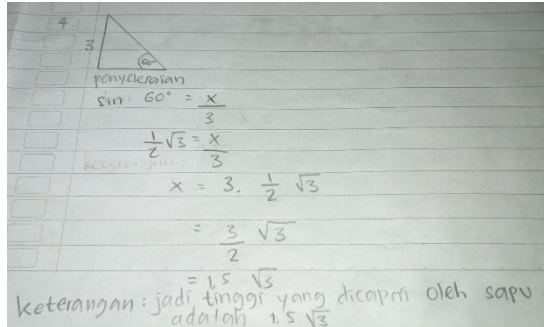 4.
3
60°
penyelesaian
sin 60° = x/3
1/2 √3 = x/3
x = 3. 1/2 √3
= 3/2 √3
= 1,5 √3
Keterangan: jadi tinggi yang dicapai oleh sapu
adalah 1,5 √3